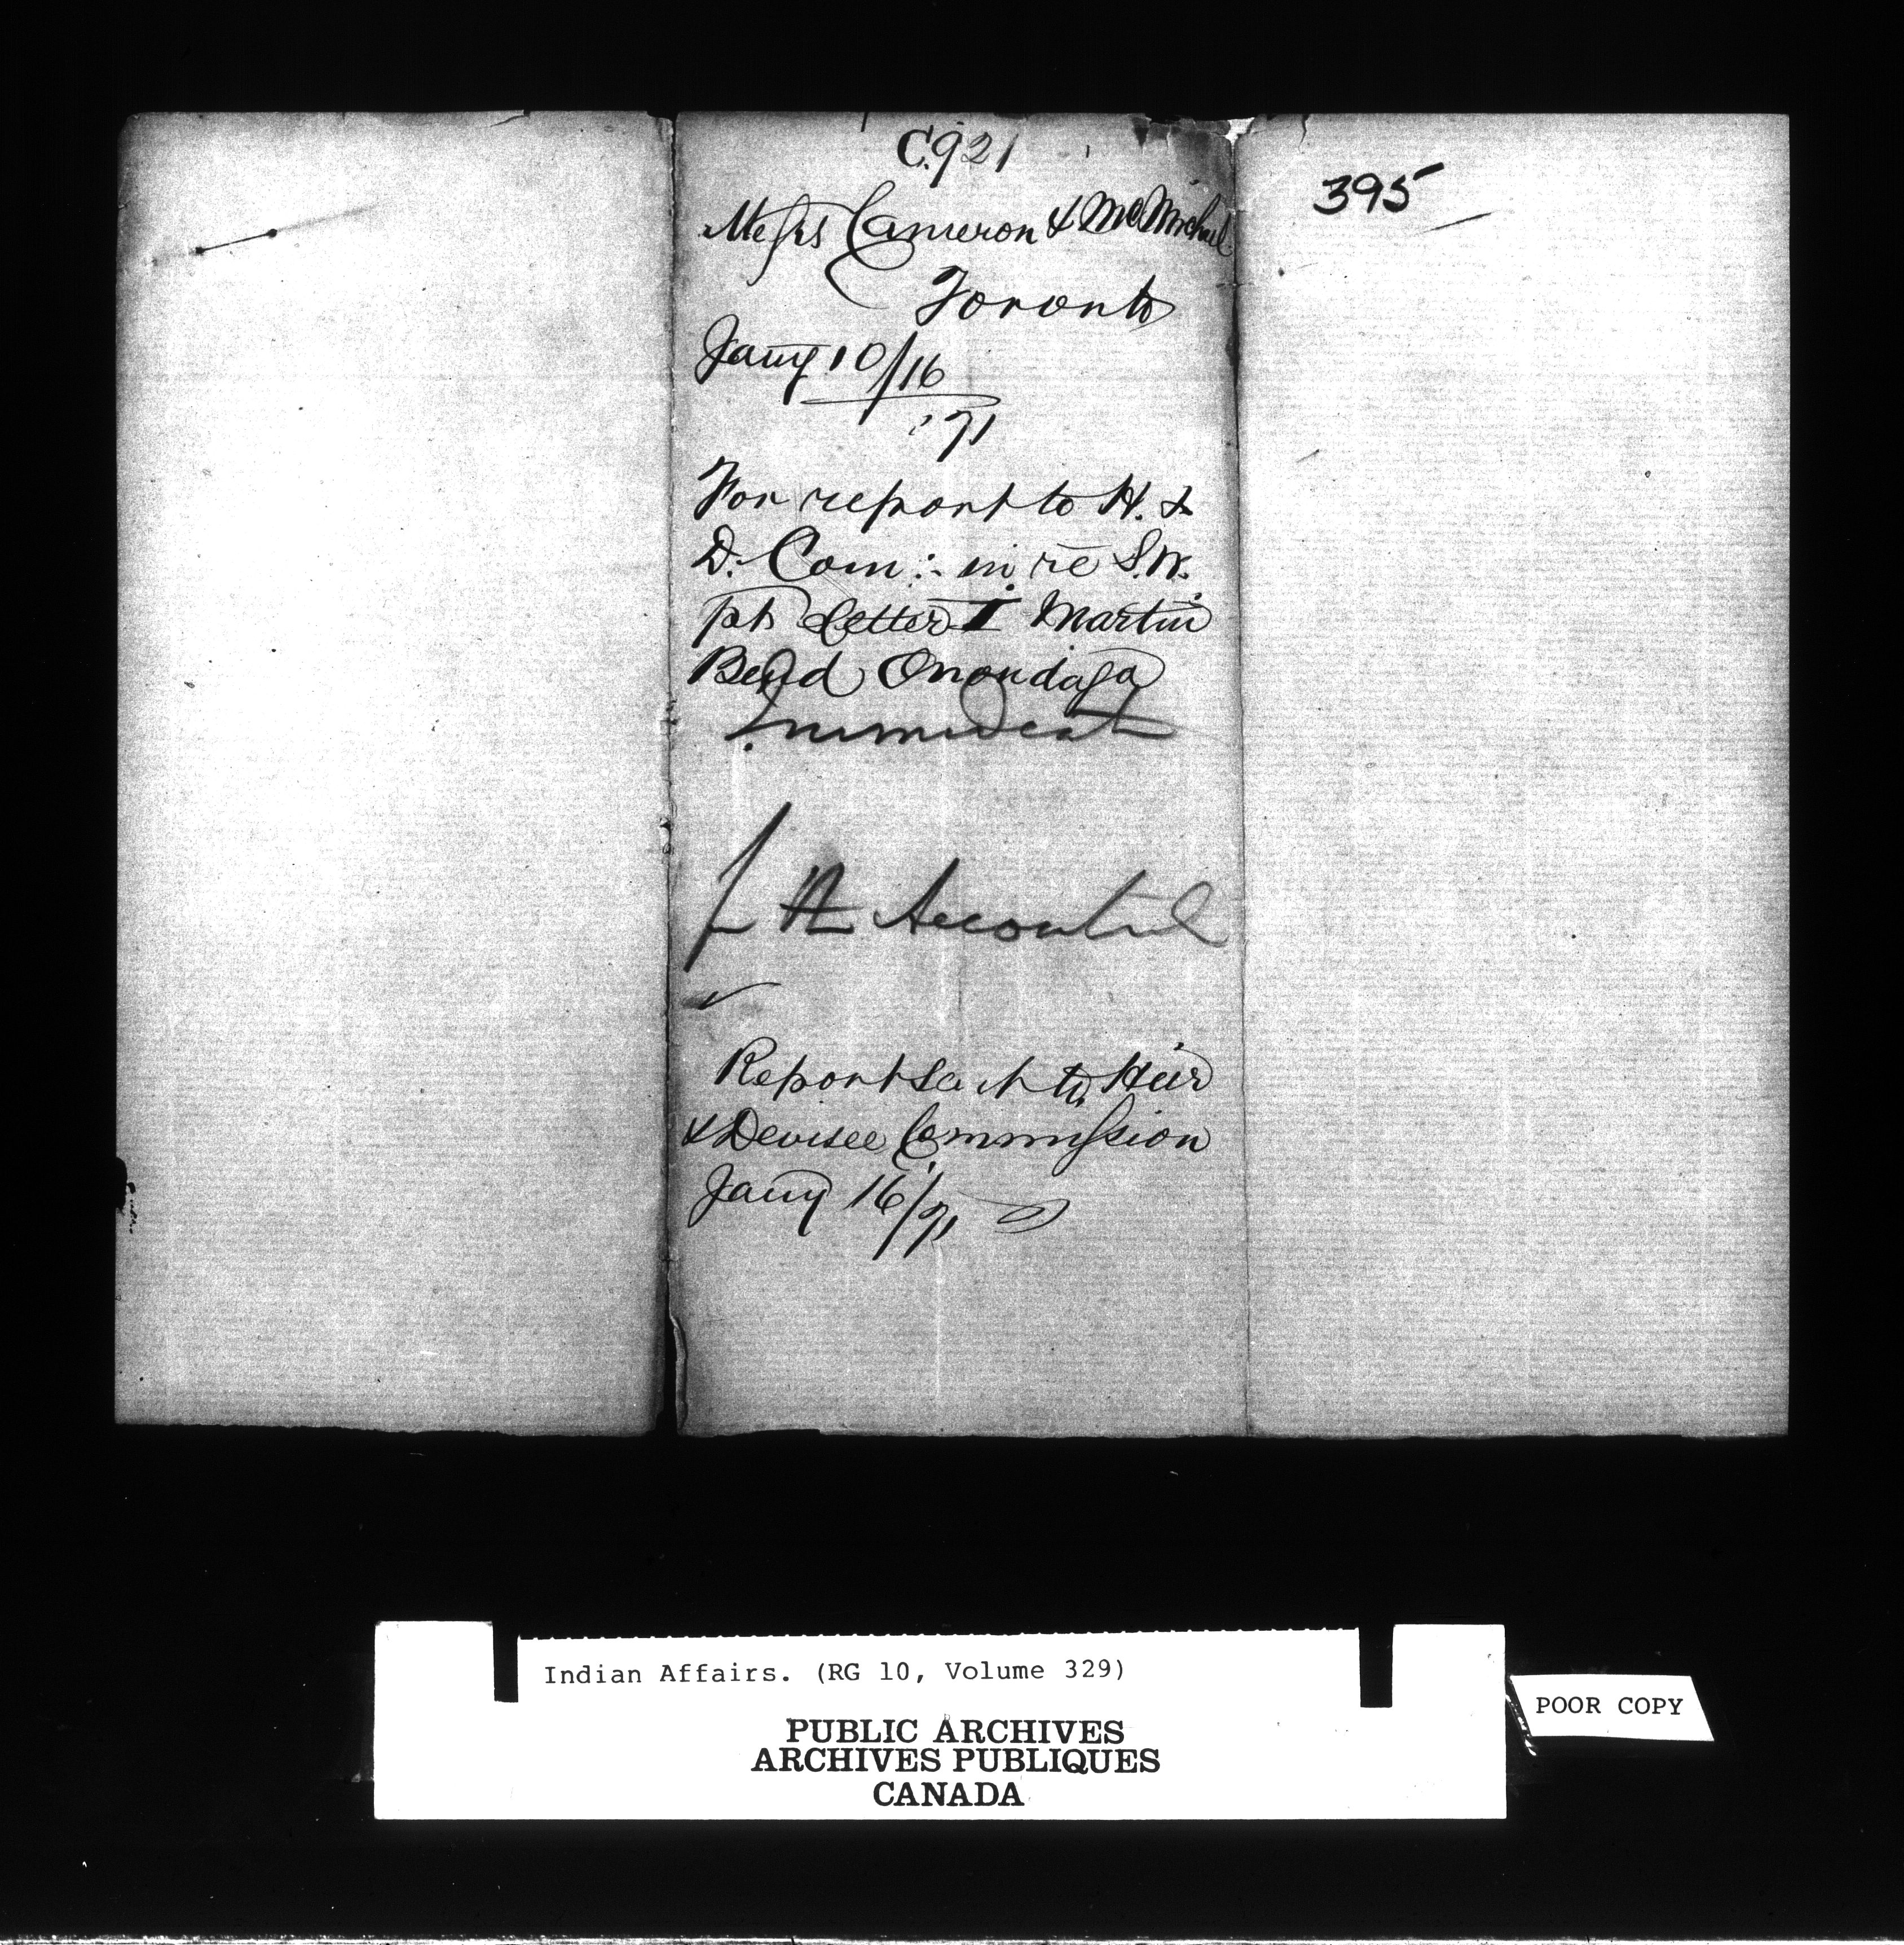 C.921
395
Messrs Cameron & McMichael
Toronto
Jany 10/16
'71
For report to H. &
D. Com: in re S.W.
pt Letter I Martin
Bend Onondaga
Accountant
Report sent to Heir
& Devisee Commission
Jany 16/71
Indian Affairs. (RG 10, Volume 329)
PUBLIC ARCHIVES
ARCHIVES PUBLIQUES
CANADA
POOR COPY